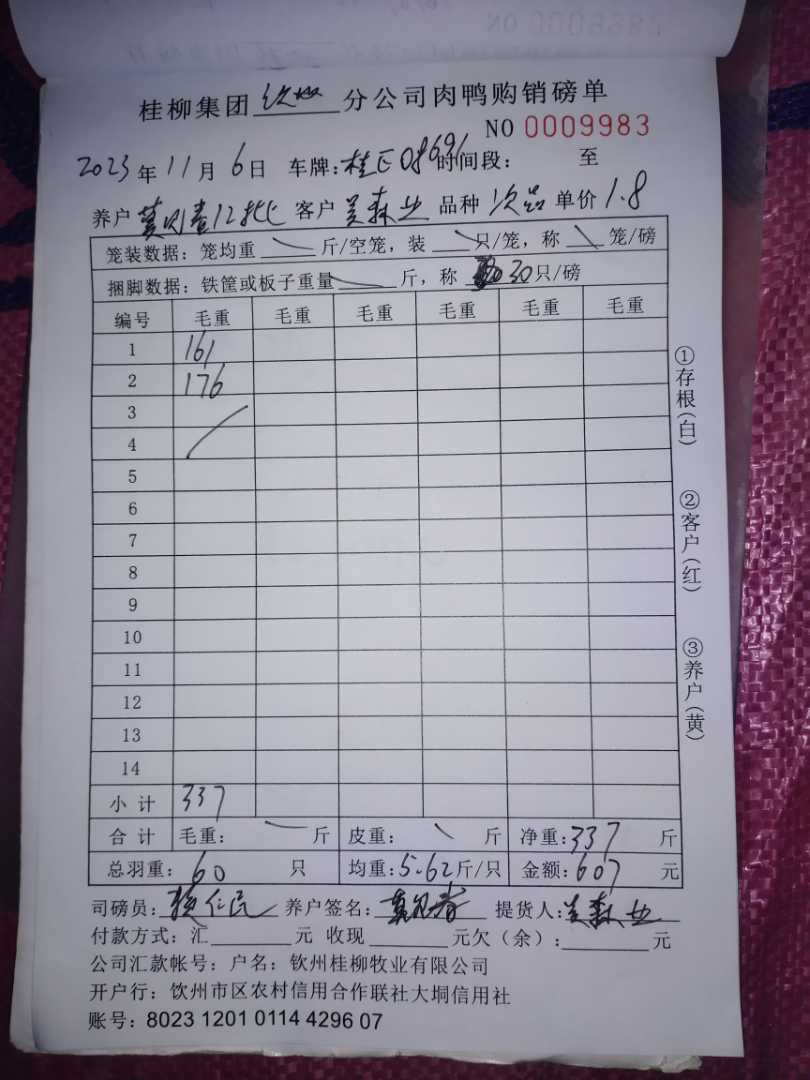 桂柳集团 钦州 分公司肉鸭购销磅单
NO 0009983
2023年11月6日 车牌:桂E08691时间段: 至
养户 12批 客户 森业 品种 次品 单价 1.8
笼装数据:笼均重 斤/空笼,装 只/笼,称 笼/磅
捆脚数据:铁筐或板子重量 斤,称 30只/磅
编号 毛重 毛重 毛重 毛重 毛重 毛重
1 161
2 176
3
4
5
6
7
8
9
10
11
12
13
14
小计 337
合计 毛重: 斤 皮重: 斤 净重:337 斤
总羽重:60 只 均重:5.62斤/只 金额:607 元
司磅员: 仁民 养户签名: 提货人: 森业
付款方式:汇 元 收现 元欠(余): 元
公司汇款帐号:户名:钦州桂柳牧业有限公司
开户行:饮州市区农村信用合作联社大垌信用社
账号:8023 1201 0114 4296 07
①存根(白)
②客户(红)
③养户(黄)